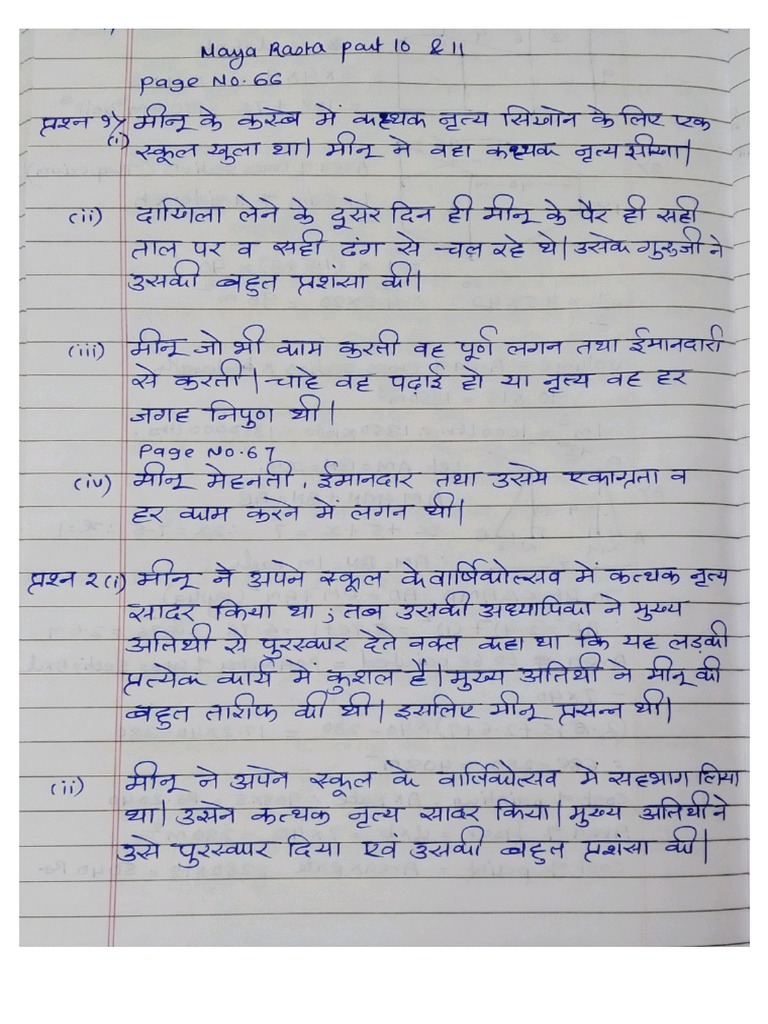 Maya Rasta part 10 & 11
Page No. 66
प्रश्न १) मीनू के कस्बे में कथ्थक नृत्य सिखाने के लिए एक
(i) स्कूल खुला था। मीनू ने वहा कथ्थक नृत्य सीखा।
(ii) दाखिला लेने के दूसरे दिन ही मीनू के पैर ही सही
ताल पर व सही ढंग से चल रहे थे। उसके गुरुजी ने
उसकी बहुत प्रशंसा की।
(iii) मीनू जो भी काम करती वह पूर्ण लगन तथा ईमानदारी
से करती। चाहे वह पढ़ाई हो या नृत्य वह हर
जगह निपुण थी।
Page No. 67
(iv) मीनू मेहनती, ईमानदार तथा उसमे एकाग्रता व
हर काम करने में लगन थी।
प्रश्न २(i) मीनू ने अपने स्कूल के वार्षिकोत्सव में कत्थक नृत्य
सादर किया था; तब उसकी अध्यापिका ने मुख्य
अतिथी से पुरस्कार देते वक्त कहा था कि यह लड़की
प्रत्येक कार्य में कुशल है। मुख्य अतिथी ने मीनू की
बहुत तारीफ की थी। इसलिए मीनू प्रसन्न थी।
(ii) मीनू ने अपने स्कूल के वार्षिकोत्सव में सहभाग लिया
था। उसने कत्थक नृत्य सादर किया। मुख्य अतिथी ने
उसे पुरस्कार दिया एवं उसकी बहुत प्रशंसा की।